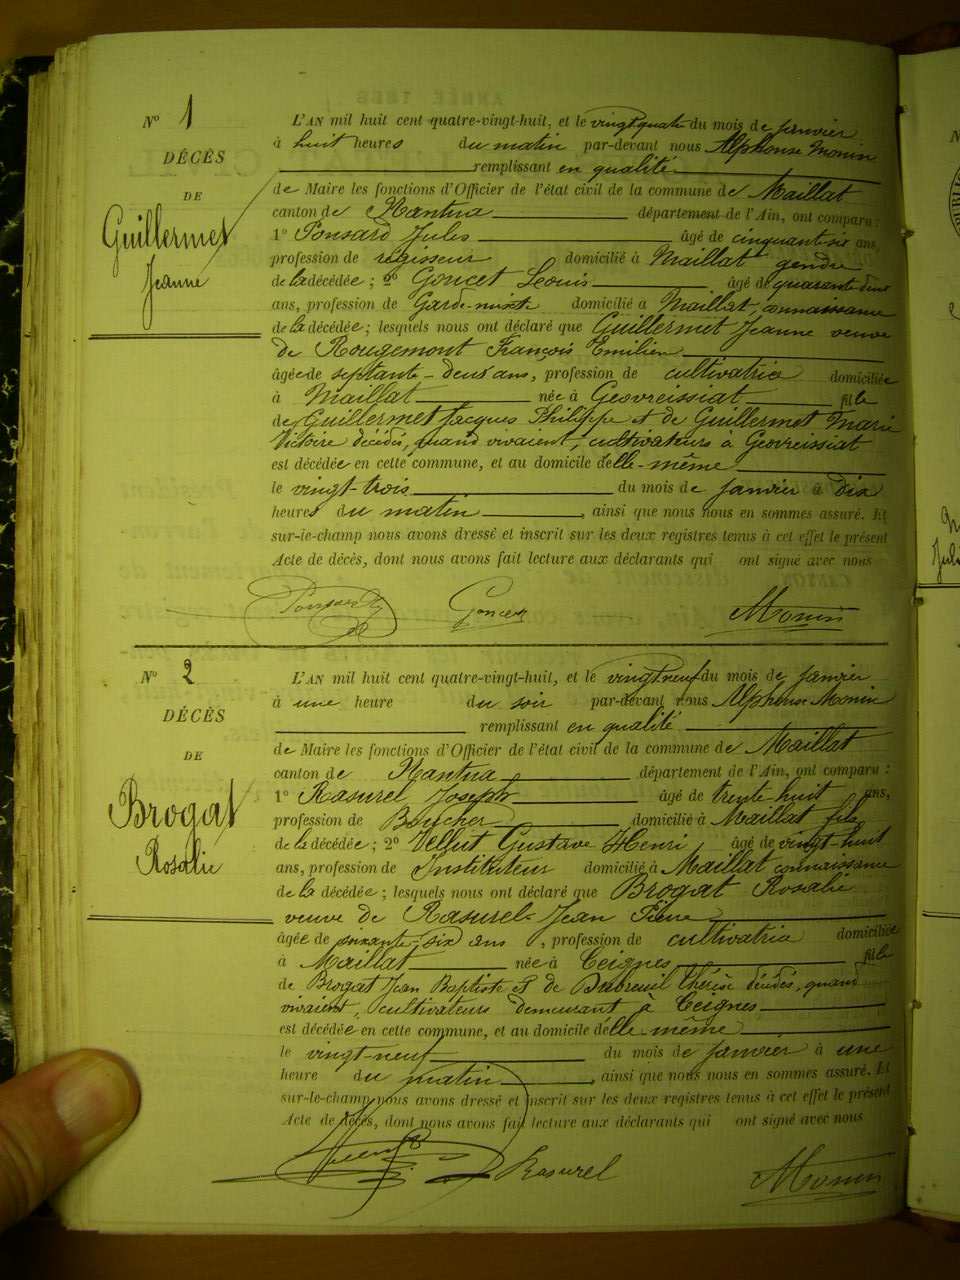 N° 1
DÉCÈS
DE
Guillermet
Jeanne
L'AN mil huit cent quatre-vingt-huit, et le vingt quatre du mois de janvier
à huit heures du matin par-devant nous Alphonse Monin
remplissant en qualité
de Maire les fonctions d'Officier de l'état civil de la commune de Maillat
canton de Nantua département de l'Ain, ont comparu :
1° Ponsard Jules âgé de cinquante six ans,
profession de régisseur domicilié à Maillat gendre
de la décédée ; 2° Goncet Léonis âgé de quarante deux
ans, profession de Garde-mixte domicilié à Maillat, connaissance
de la décédée ; lesquels nous ont déclaré que Guillermet Jeanne veuve
de Rougemont François Emilien
âgée de septante-deux ans, profession de cultivatrice domiciliée
à Maillat née à Géovreissiat fille
de Guillermet Jacques Philippe et de Guillermet Marie
Victoire décédés, quand vivaient, cultivateurs à Géovreissiat
est décédée en cette commune, et au domicile d'elle-même
le vingt-trois du mois de janvier à dix
heures du matin, ainsi que nous nous en sommes assuré. Et
sur-le-champ nous avons dressé et inscrit sur les deux registres tenus à cet effet le présent
Acte de décès, dont nous avons fait lecture aux déclarants qui ont signé avec nous
Ponsard Goncet Monin
N° 2
DÉCÈS
DE
Brogat
Rosalie
L'AN mil huit cent quatre-vingt-huit, et le vingt neuf du mois de janvier
à une heure du soir par-devant nous Alphonse Monin
remplissant en qualité
de Maire les fonctions d'Officier de l'état civil de la commune de Maillat
canton de Nantua département de l'Ain, ont comparu :
1° Rasurel Joseph âgé de trente huit ans,
profession de Boucher domicilié à Maillat fils
de la décédée ; 2° Velluit Gustave Henri âgé de vingt-huit
ans, profession de Instituteur domicilié à Maillat connaissance
de la décédée ; lesquels nous ont déclaré que Brogat Rosalie
veuve de Rasurel Jean Pierre
âgée de soixante-six ans, profession de cultivatrice domiciliée
à Maillat née à Ceignes fille
de Brogat Jean Baptiste et de Dubreuil Thérèse décédés, quand
vivaient, cultivateurs demeurant à Ceignes
est décédée en cette commune, et au domicile d'elle-même
le vingt-neuf du mois de janvier à une
heure du matin, ainsi que nous nous en sommes assuré. Et
sur-le-champ nous avons dressé et inscrit sur les deux registres tenus à cet effet le présent
Acte de décès, dont nous avons fait lecture aux déclarants qui ont signé avec nous
Rasurel Monin